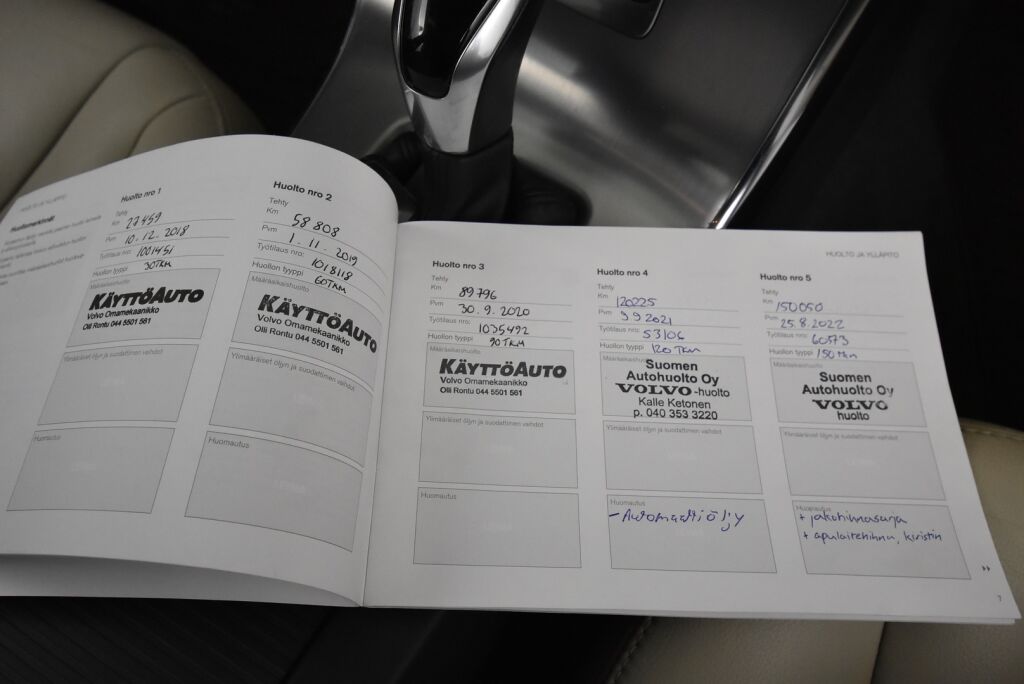 HUOLTO JA YLLÄPITO
Huoltomerkinnät
Huolto nro 1
Tehty
Km 27459
Pvm 10.12.2018
Työtilaus nro: 1001451
Huollon tyyppi 30TKM
KÄYTTÖAUTO
Volvo Ornamekaanikko
Olli Rontu 044 5501 561
Ylimääräiset öljyn ja suodattimen vaihdot
Huomautus
Huolto nro 2
Tehty
Km 58808
Pvm 1.11.2019
Työtilaus nro: 1018118
Huollon tyyppi 60TKM
Määräaikaishuolto
KÄYTTÖAUTO
Volvo Omamekaanikko
Olli Rontu 044 5501 561
Ylimääräiset öljyn ja suodattimen vaihdot
Huomautus
Huolto nro 3
Tehty
Km 89796
Pvm 30.9.2020
Työtilaus nro: 1035492
Huollon tyyppi 90TKM
Määräaikaishuolto
KÄYTTÖAUTO
Volvo Omamekaanikko
Olli Rontu 044 5501 561
Ylimääräiset öljyn ja suodattimen vaihdot
Huomautus
Huolto nro 4
Tehty
Km 120225
Pvm 9.9.2021
Työtilaus nro: 53106
Huollon tyyppi 120TKM
Määräaikaishuolto
Suomen
Autohuolto Oy
VOLVO-huolto
Kalle Ketonen
p. 040 353 3220
Ylimääräiset öljyn ja suodattimen vaihdot
Huomautus
- Automaattiöljy
HUOLTO JA YLLÄPITO
Huolto nro 5
Tehty
Km 150050
Pvm 25.8.2022
Työtilaus nro: 60573
Huollon tyyppi 150tkm
Määräaikaishuolto
Suomen
Autohuolto Oy
VOLVO
huolto
Ylimääräiset öljyn ja suodattimen vaihdot
Huomautus
+ jakohihnasarja
+ apulaitehihna, kiristin
7